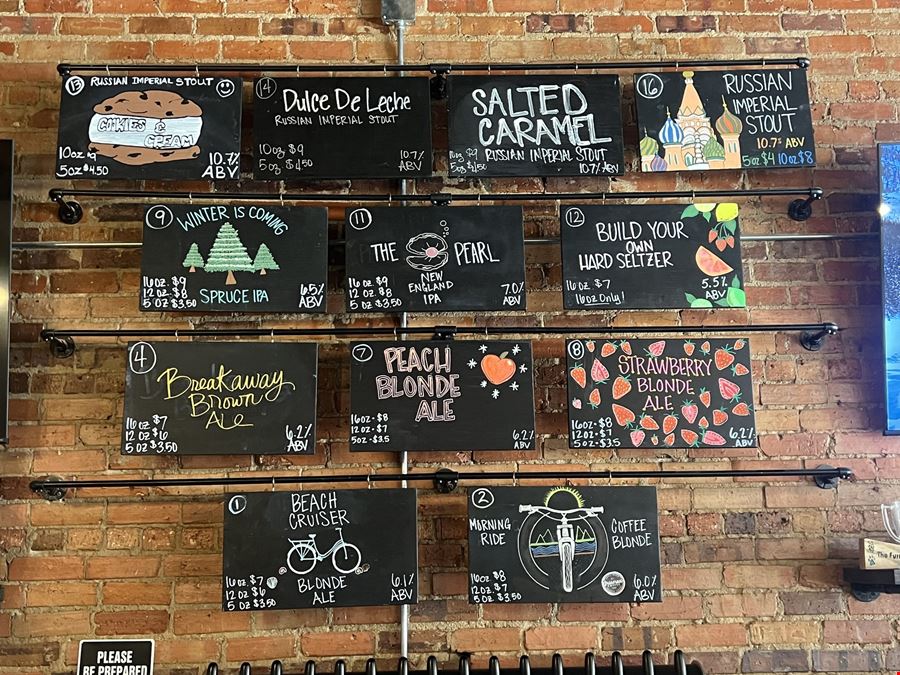 13 RUSSIAN IMPERIAL STOUT
COOKIES &
CREAM
10oz $9
5oz $4.50
10.7%
ABV
14
Dulce De Leche
RUSSIAN IMPERIAL STOUT
10oz $9
5oz $4.50
10.7%
ABV
SALTED
CARAMEL
RUSSIAN IMPERIAL STOUT
10oz $9
5oz $4.50
10.7% ABV
16
RUSSIAN
IMPERIAL
STOUT
10.7% ABV
5oz $4 10oz $8
9
WINTER IS COMING
SPRUCE IPA
16oz $9
12oz $8
5oz $3.50
6.5%
ABV
11
THE PEARL
NEW
ENGLAND
IPA
16oz $9
12oz $8
5oz $3.50
7.0%
ABV
12
BUILD YOUR
OWN
HARD SELTZER
16oz. $7
16oz Only!
5.5%
ABV
4
Breakaway
Brown
ALE
16oz $7
12oz $6
5oz $3.50
6.2%
ABV
7
PEACH
BLONDE
ALE
16oz - $8
12oz - $7
5oz - $3.5
6.2%
ABV
8
STRAWBERRY
BLONDE
ALE
16oz - $8
12oz - $7
5oz - $3.5
6.2%
ABV
1
BEACH
CRUISER
BLONDE
ALE
16oz. $7
12oz $6
5oz $3.50
6.1%
ABV
2
MORNING
RIDE
COFFEE
BLONDE
16oz $8
12oz. $7
5oz $3.50
6.0%
ABV
PLEASE
BE PREPARED